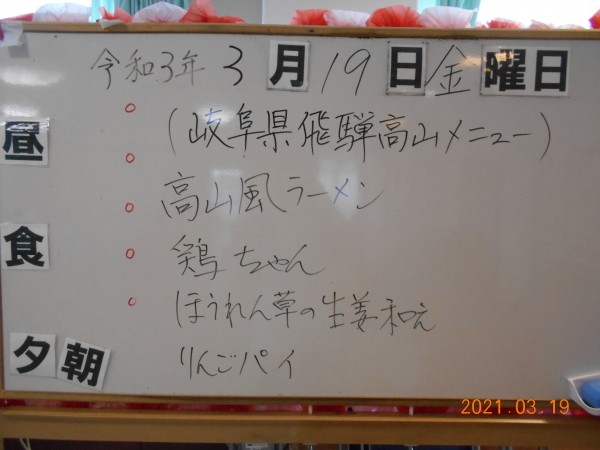 令和3年 3月19日金曜日
昼食
(岐阜県飛騨高山メニュー)
高山風ラーメン
鶏ちゃん
ほうれん草の生姜和え
りんごパイ
夕朝
2021.03.19